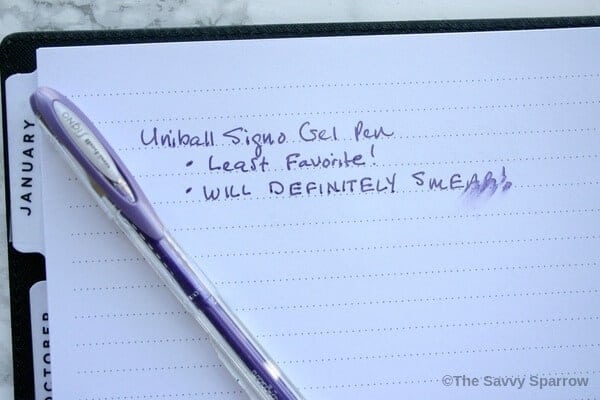 Uniball Signo Gel Pen
• Least Favorite!
• WILL DEFINITELY SMEAR!
JANUARY
OCTOBER
uni-ball Signo
©The Savvy Sparrow